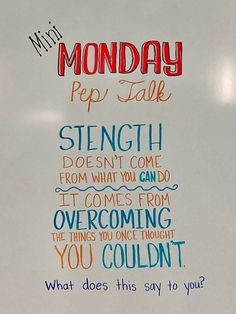 Mini
MONDAY
Pep Talk
STENGTH
DOESN'T COME
FROM WHAT YOU CAN DO
IT COMES FROM
OVERCOMING
THE THINGS YOU ONCE THOUGHT
YOU COULDN'T.
What does this say to you?